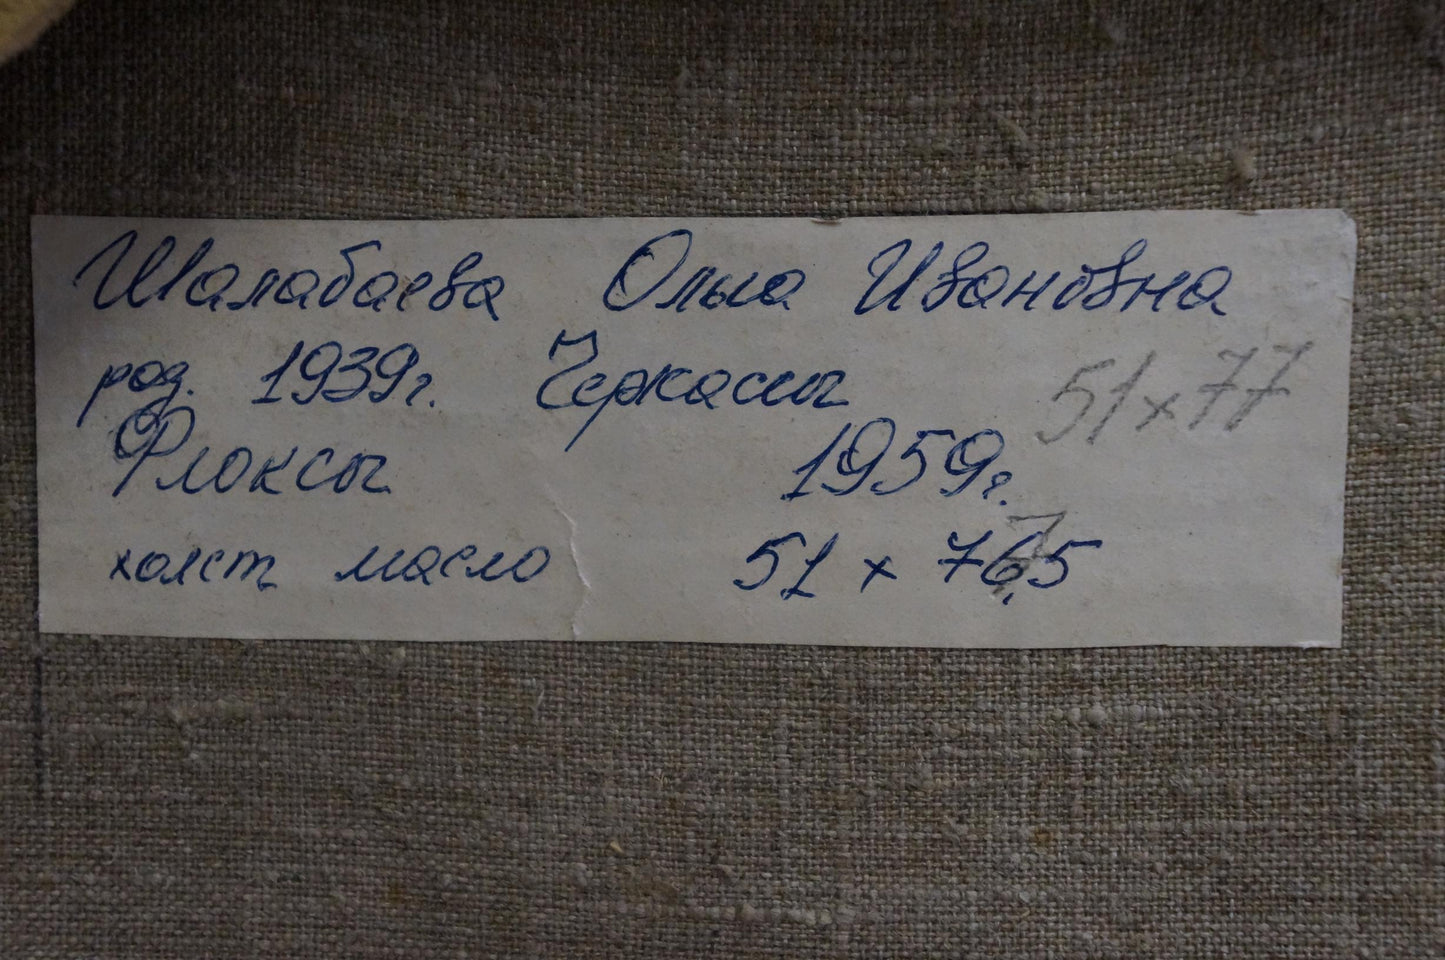 Шалабаева Ольга Ивановна
род. 1939г. Черкассы
51х77
Флоксы 1959г.
холст масло 51 х 76,5